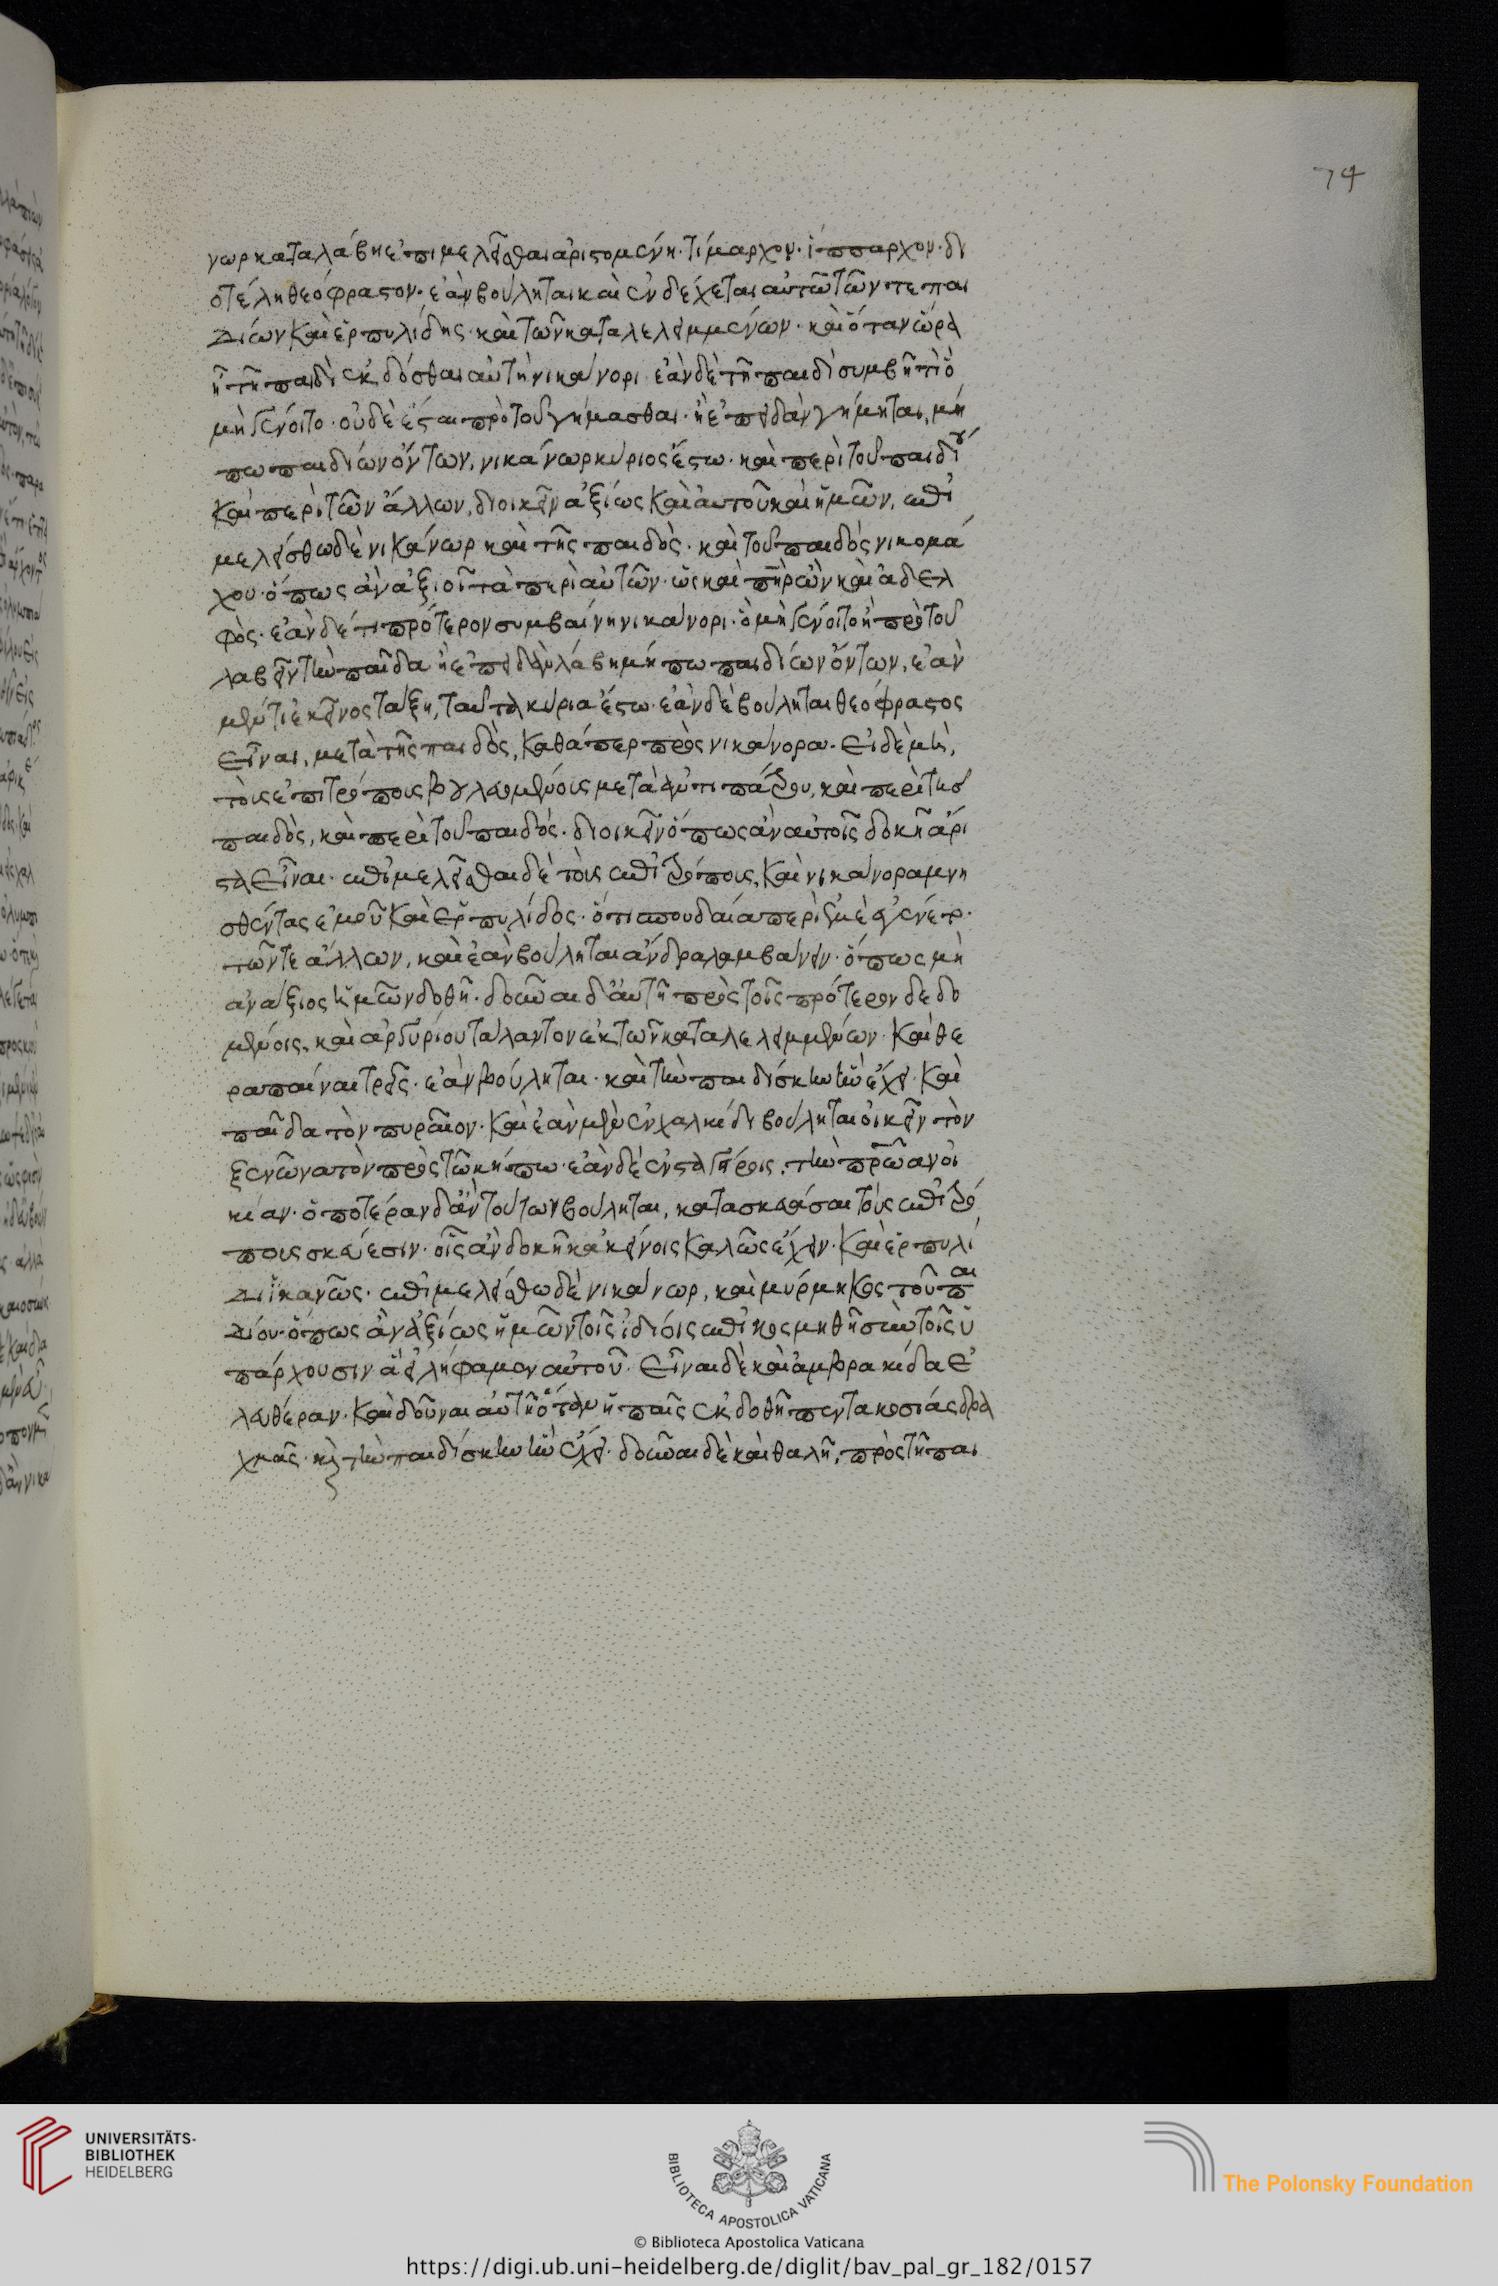 74
νωρ καταλάβη ἐπιμελεῖσθαι ἀριστομένη· τίμαρχον· ἵππαρχον· δι
οτέλη θεόφραστον· ἐὰν βούληται καὶ ἐνδέχεται αὐτῶ τῶν τε παι
δίων καὶ ἑρπυλίδης· καὶ τῶν καταλελειμμένων· καὶ ὅταν ὥρα
ἦ τῆ παιδὶ ἐκδόσθαι αὐτὴν νικάνορι· ἐὰν δὲ τῆ παιδὶ συμβῆ τι ὃ
μὴ γένοιτο· οὐδὲ ἔσται πρὸ τοῦ γήμασθαι· ἢ ἐπειδὰν γήμηται, μή
πω παιδίων ὄντων, νικάνωρ κύριος ἔστω· καὶ περὶ τοῦ παιδίου
καὶ περὶ τῶν ἄλλων, διοικεῖν ἀξίως καὶ αὐτοῦ καὶ ἡμῶν, ἐπι
μελείσθω δὲ νικάνωρ καὶ τῆς παιδὸς· καὶ τοῦ παιδός νικομά
χου· ὅπως ἂν ἀξιοῖ τὰ περὶ αὐτῶν· ὡς καὶ πὴρ ὢν καὶ ἀδελ
φὸς· ἐὰν δέ τι πρότερον συμβαίνη νικάνορι· ὃ μὴ γένοιτο ἢ πρὸ τοῦ
λαβεῖν τὴν παῖδα ἢ ἐπειδὰν λάβη μήπω παιδίων ὄντων, ἐὰν
μέν τι ἐκεῖνος τάξη, ταῦτα κύρια ἔστω· ἐὰν δὲ βούληται θεόφραστος
εἶναι, μετὰ τῆς παιδὸς, καθάπερ πρὸς νικάνορα· εἰ δὲ μὴ,
τοὺς ἐπιτρόπους βουλευομένους μετὰ ἀντιπάτρου, καὶ περὶ τῆς
παιδὸς, καὶ περὶ τοῦ παιδὸς· διοικεῖν ὅπως ἂν αὐτοῖς δοκῆ ἄρι
στα εἶναι· ἐπιμελεῖσθαι δὲ τοὺς ἐπιτρόπους, καὶ νικάνορα μνη
σθέντας ἐμοῦ καὶ ἑρπυλίδος· ὅτι σπουδαία περὶ ἐμὲ ἐγένετο·
τῶν τε ἄλλων, καὶ ἐὰν βούληται ἄνδρα λαμβάνειν· ὅπως μὴ
ἀνάξιος ἡμῶν δοθῆ· δοῦναι δ' αὐτῆ πρὸς τοῖς πρότερον δεδο
μένοις, καὶ ἀργυρίου τάλαντον ἐκ τῶν καταλελειμμένων· καὶ θε
ραπαίνας τρεῖς· ἐὰν βούληται· καὶ τὴν παιδίσκην ἣν ἔχει· καὶ
παῖδα τὸν πυραῖον· καὶ ἐὰν μὲν ἐν χαλκίδι βούληται οἰκεῖν τὸν
ξενῶνα τὸν πρὸς τῶ κήπω· ἐὰν δὲ ἐν σταγήροις, τὴν πρῶαν οἰ
κίαν· ὁποτέραν δ' ἂν τούτων βούληται, κατασκευάσαι τοὺς ἐπιτρό
πους σκεύεσιν· οἷς ἂν δοκῆ κἀκείνοις καλῶς ἔχειν· καὶ ἑρπυλί
δι ἱκανῶς· ἐπιμελείσθω δὲ νικάνωρ, καὶ μύρμηκος τοῦ παι
δίου· ὅπως ἂν ἀξίως ἡμῶν τοῖς ἰδίοις ἐπικοςμηθῆ σὺν τοῖς ὑ
πάρχουσιν ἃ εἰλήφαμεν αὐτοῦ· εἶναι δὲ καὶ ἀμβρακίδα ἐ
λευθέραν· καὶ δοῦναι αὐτῆ ὅταν ἡ παῖς ἐκδοθῆ πεντακοσίας δρα
χμὰς· καὶ τὴν παιδίσκην ἣν ἔχει· δοῦναι δὲ καὶ θαλῆ, πρὸς τῆ παι
UNIVERSITÄTS-
BIBLIOTHEK
HEIDELBERG
BIBLIOTECA APOSTOLICA VATICANA
The Polonsky Foundation
© Biblioteca Apostolica Vaticana
https://digi.ub.uni-heidelberg.de/diglit/bav_pal_gr_182/0157